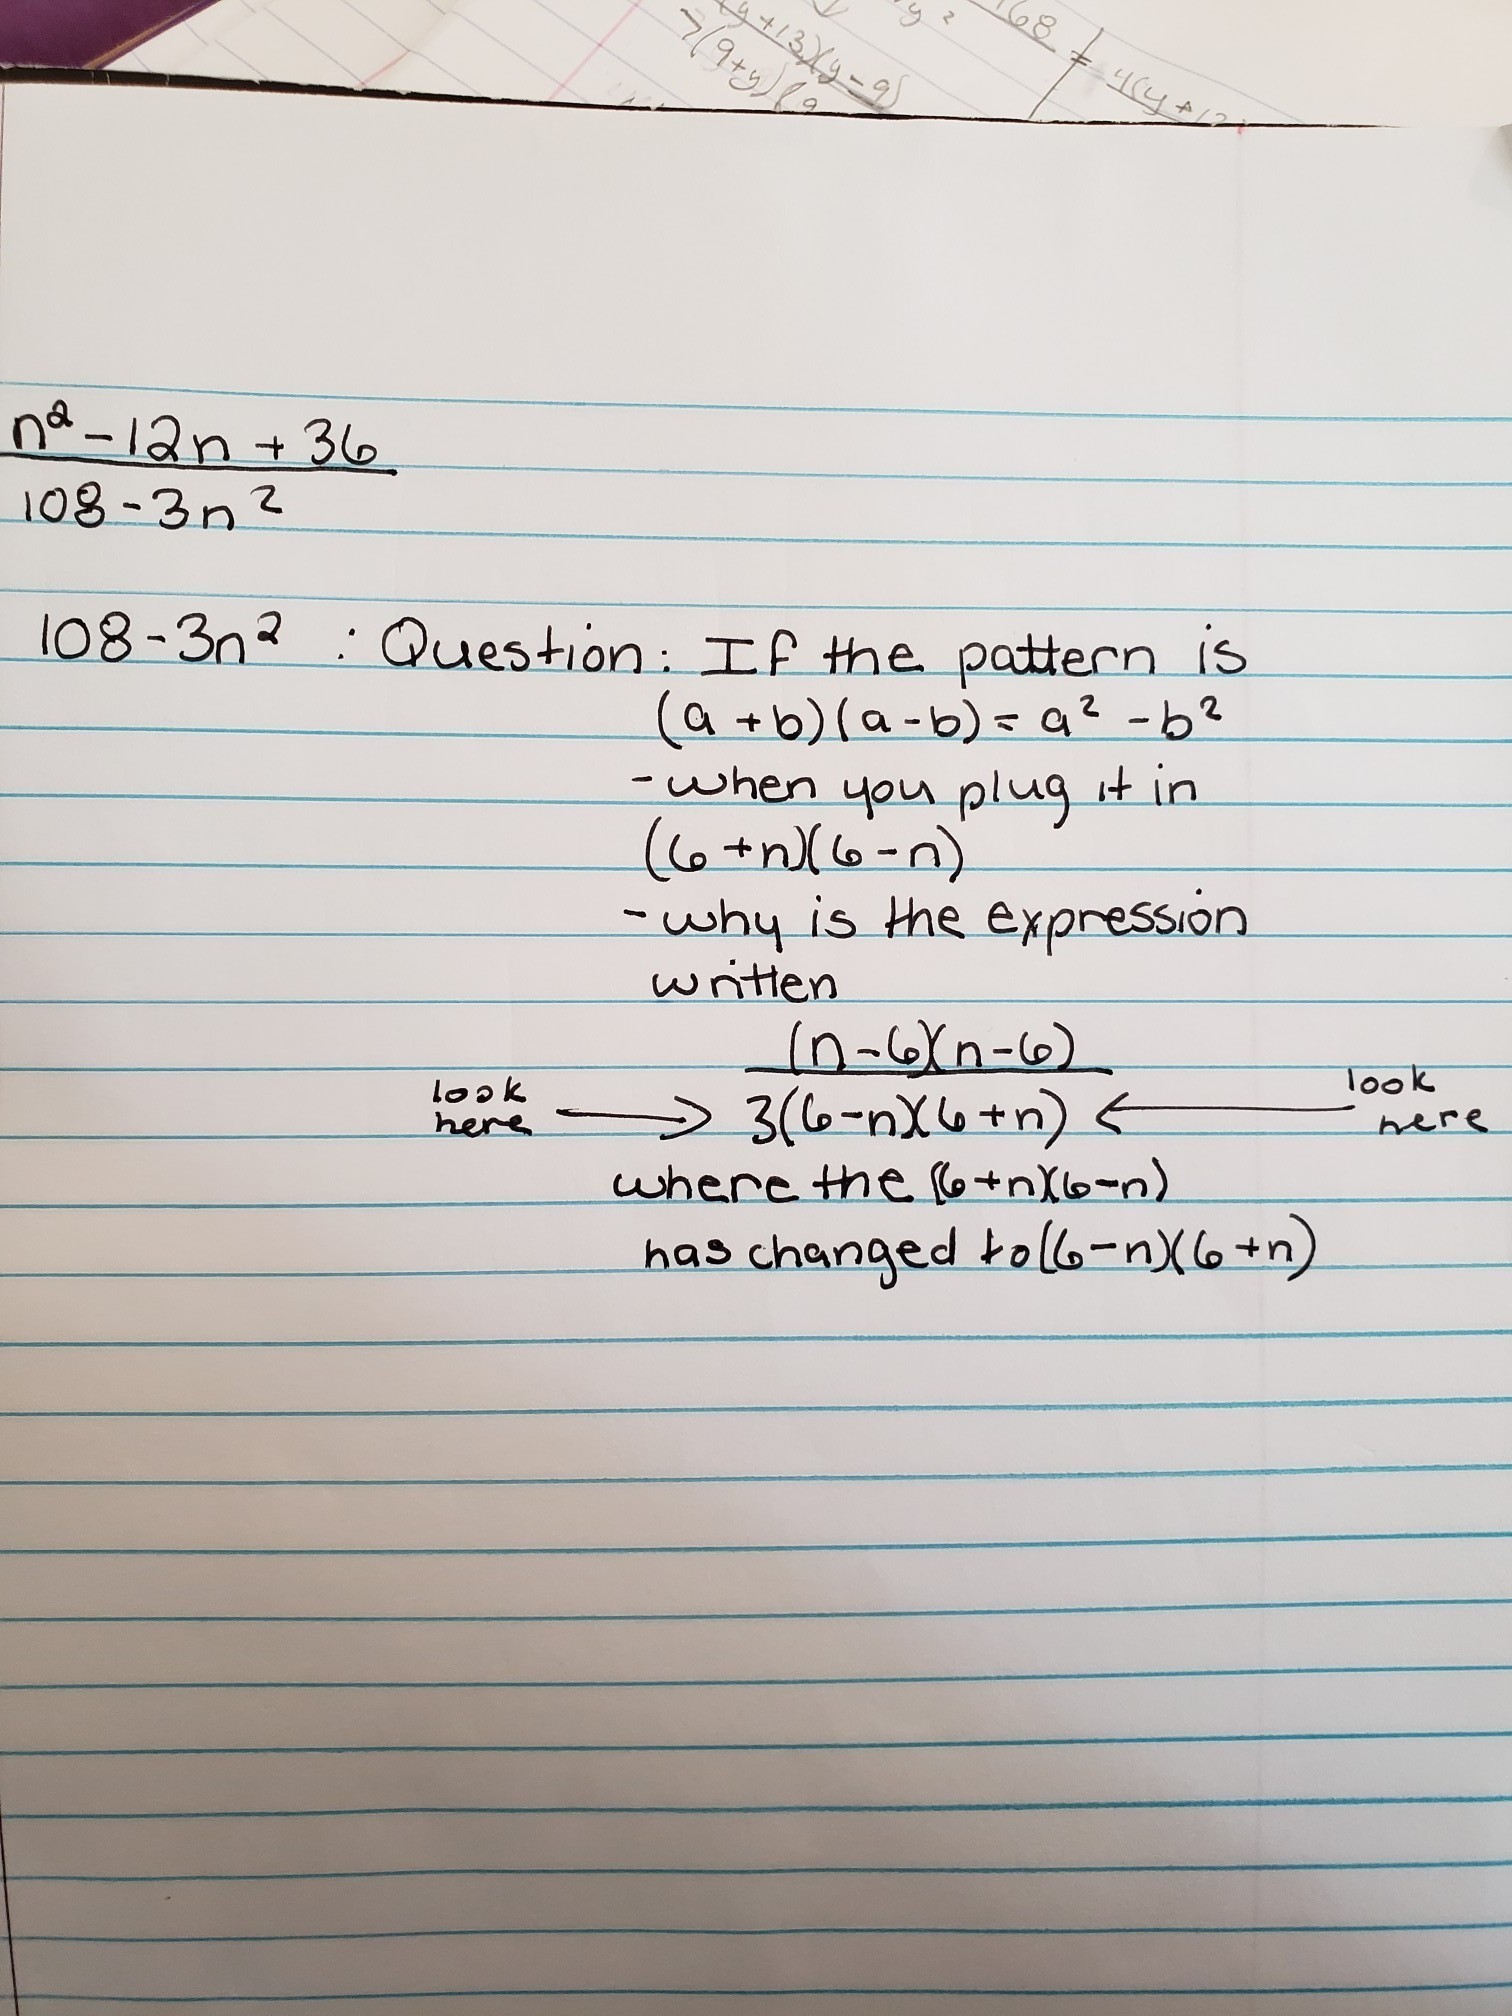 y+13)(y-9)
(9+y)(9
y²
168
4(y+13
n² - 12n + 36
108 - 3n²
108 - 3n² : Question: If the pattern is
(a + b)(a - b) = a² - b²
- when you plug it in
(6 + n)(6 - n)
- why is the expression
written
(n - 6)(n - 6)
look here → 3(6 - n)(6 + n) ← look here
where the (6+n)(6-n)
has changed to (6-n)(6+n)